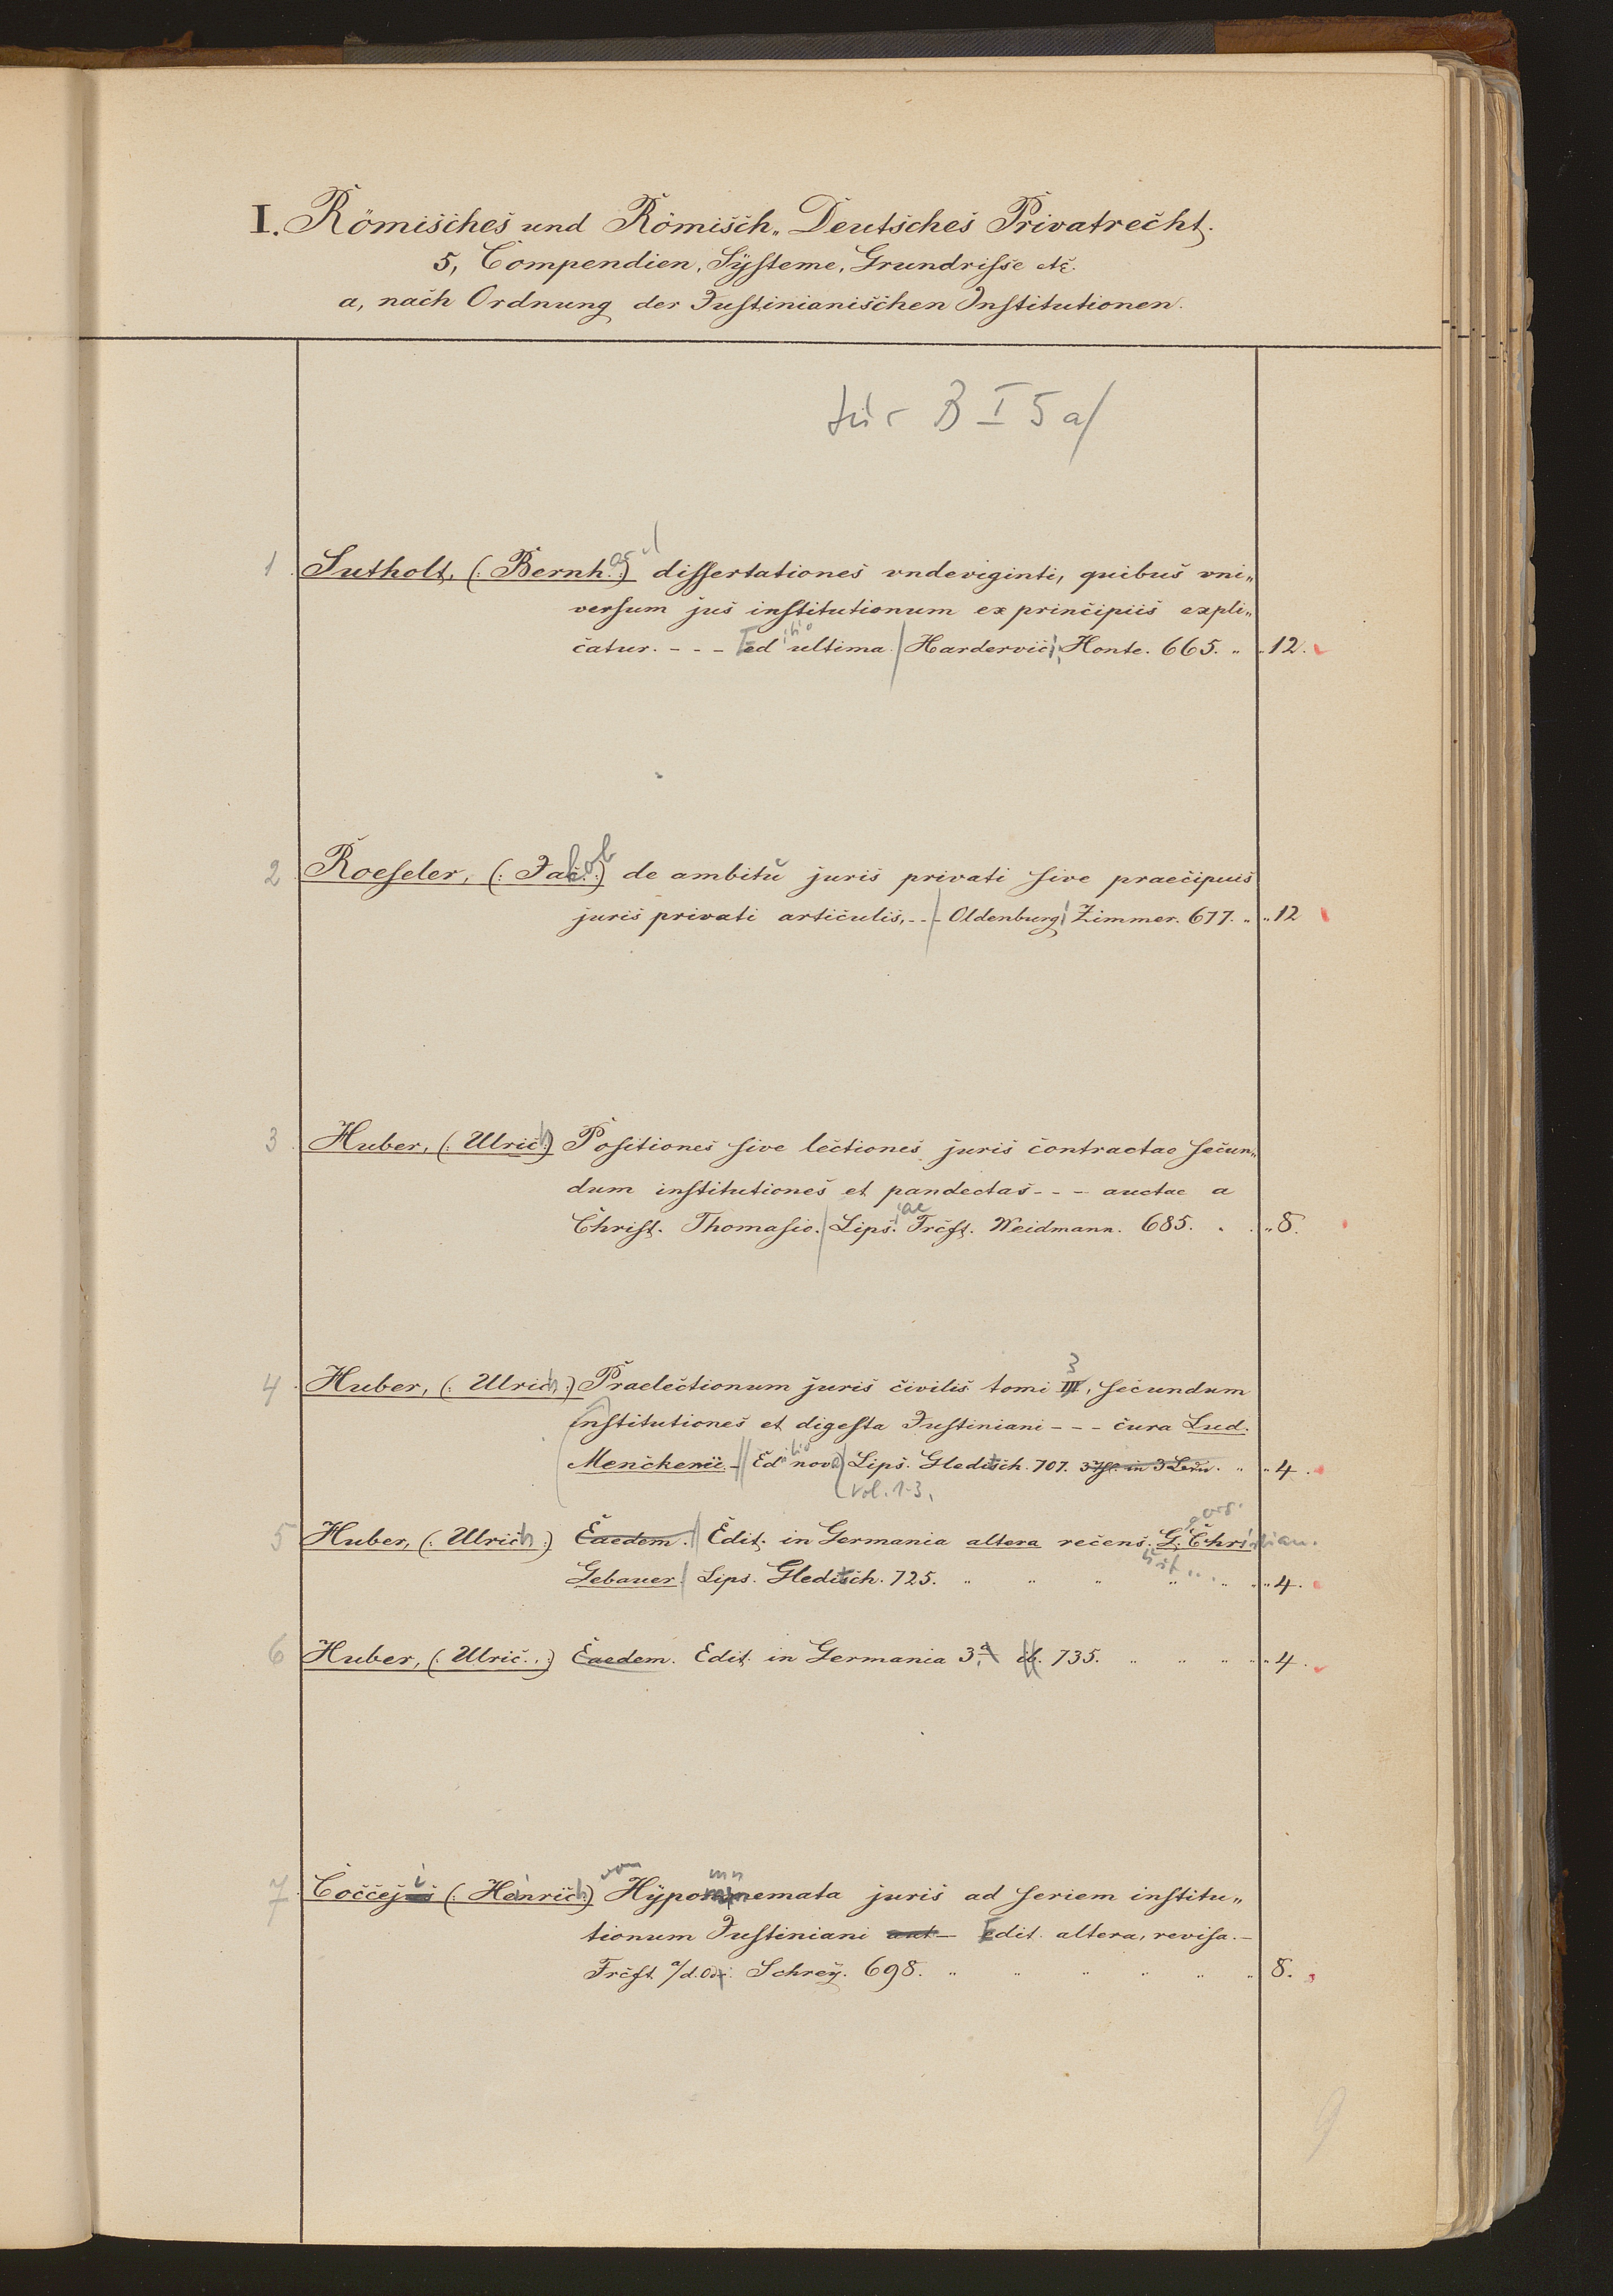 I. Römisches und Römisch-Deutsches Privatrecht.
5, Compendien, Systeme, Grundrisse etc.
a, nach Ordnung der Justinianischen Institutionen.
für B I 5 a/
1 Sutholt, (: Bernh. :) dissertationes vndeviginti, quibus vni-
versum jus institutionum ex principiis expli-
catur. - - - Ed. ultima. Hardervici, Honte. 665. " " 12.
2 Roeseler, (: Jacob :) de ambitu juris privati sive praecipuis
juris privati articulis, - - - Oldenburg, Zimmer. 677. " " 12
3 Huber, (: Ulrich :) Positiones sive lectiones juris contractae secun-
dum institutiones et pandectas - - - auctae a
Christ. Thomasio. Lips. Frcft. Weidmann. 685. " " 8.
4 Huber, (: Ulrich :) Praelectionum juris civilis tomi III, secundum
3
institutiones et digesta Justiniani - - - cura Lud.
Menckenii - Editio nova Lips. Gleditsch. 707. " " 4.
Vol. 1-3.
5 Huber, (: Ulrich :) Eaedem. Edit. in Germania altera recens. G. Christian.
Gebauer. Lips. Gleditsch. 725. " " " " " " 4.
6 Huber, (: Ulric. :) Eaedem. Edit. in Germania 3. ib. 735. " " " " 4.
7 Cocceji (: Heinrich :) von Hypomnemata juris ad seriem institu-
mn
tionum Justiniani aut - Edit. altera, revisa. -
Frcft. a/d. Od. Schrey. 698. " " " " " " 8.
9